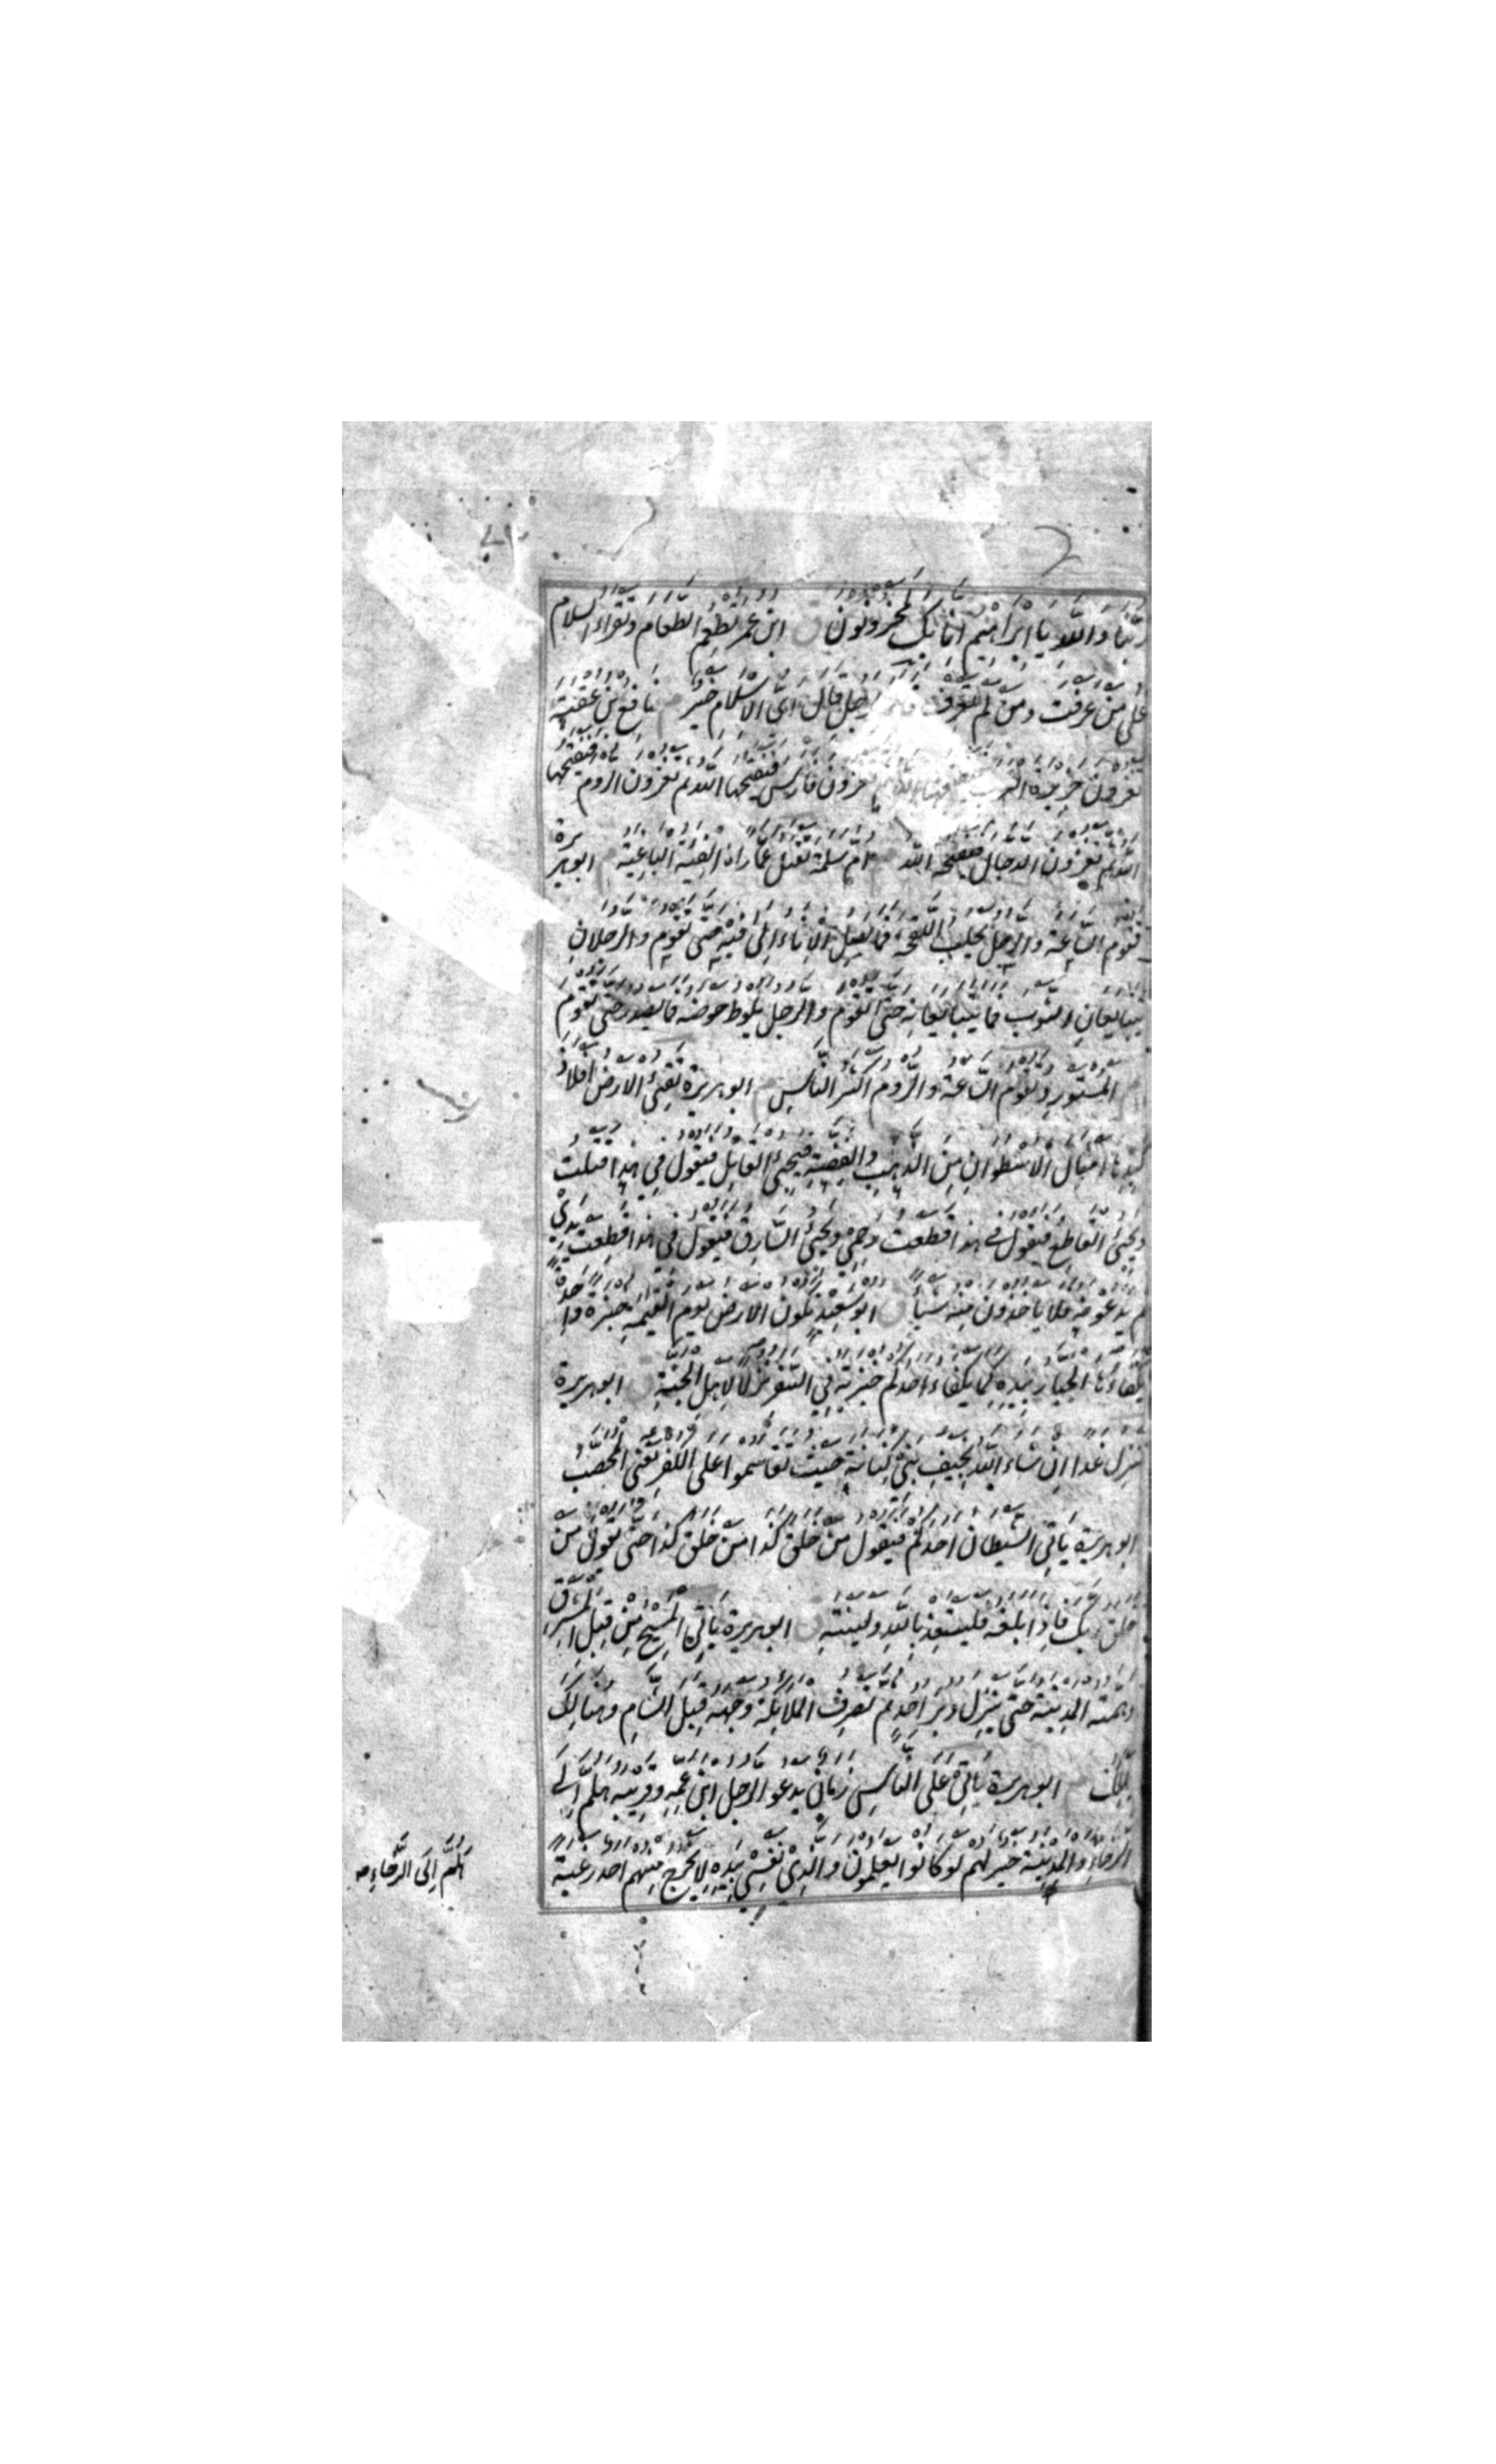 ربنا والله يا ابراهيم انا بك لمحزونون ق ابن عمر تطعم الطعام وتقراء السلام
على من عرفت ومن لم تعرف رجل قال اى الاسلام خير م نافع بن عقبة
تغزون جزيرة تغزون فارس فيفتحها الله ثم تغزون الروم فيفتحها
الله ثم تغزون الدجال فيفتحه الله م ام سلمة تقتل عمارا الفئة الباغية م ابو هريرة
تقوم الساعة والرجل يحلب اللقحة فما يصل الاناء الى فيه حتى تقوم والرجلان
يتبايعان الثوب فما يتبايعانه حتى تقوم والرجل يلوط حوضه فما يصدر حتى تقوم
م المستورد تقوم الساعة والروم اكثر الناس م ابو هريرة تقئ الارض افلاذ
كبدها امثال الاسطوان من الذهب والفضة فيجئ القاتل فيقول فى هذا قتلت
ويجئ القاطع فيقول فى هذا قطعت رحمى ويجئ السارق فيقول فى هذا قطعت يدى
ثم يدعونه فلا ياخذون منه شيئا ق ابو سعيد تكون الارض يوم القيمة خبزة واحدة
يتكفاءها الجبار بيده كما يكفاء احدكم خبزته فى السفر نزلا لاهل الجنة ق ابو هريرة
ننزل غدا ان شاء الله بخيف بنى كنانة حيث تقاسموا على الكفر يعنى المحصب
ابو هريرة ياتى الشيطان احدكم فيقول من خلق كذا من خلق كذا حتى يقول من
خلق ربك فاذا بلغه فليستعذ بالله ولينته ق ابو هريرة ياتى المسيح من قبل المشرق
وهمته المدينة حتى ينزل دبر احد ثم تصرف الملائكة وجهه قبل الشام وهنالك
يهلك م ابو هريرة ياتى على الناس زمان يدعو الرجل ابن عمه وقريبه هلم الى
الرخاء والمدينة خير لهم لو كانوا يعلمون والذى نفسى بيده لا يخرج منهم احد رغبة
هلم الى الرخاء صه